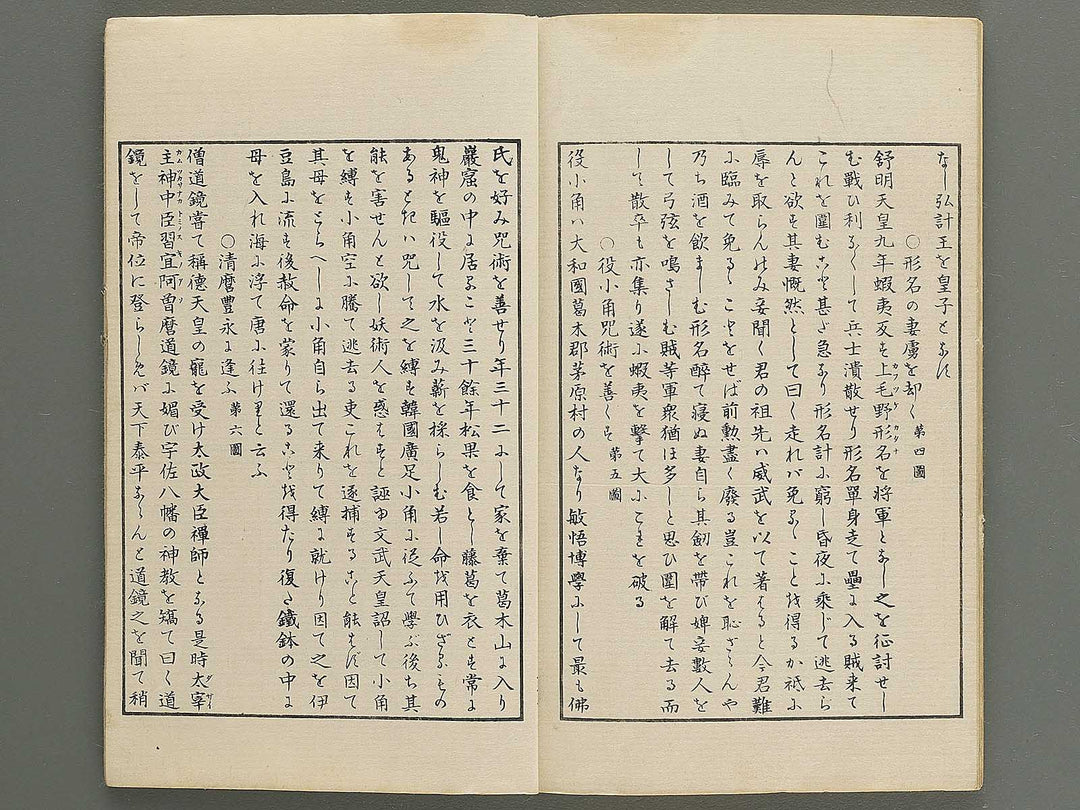 なし弘計王を皇子となす
○形名の妻虜を却く 第四圖
舒明天皇九年蝦夷反す上毛野形名を将軍となし之を征討せし
カツケ カタナ
む戦ひ利なくして兵士潰散せり形名單身走て壘に入る賊来て
これを圍むこと甚だ急なり形名計に窮し昏夜に乘じて逃去ら
んと欲す其妻慨然として曰く走れバ免るゝこと
を得るか祗に
辱を取らんのみ妾聞く君の祖先ハ威武を以て著はると今君難
に臨みて免るゝことをせば前勲盡く廢る豈これを恥ざらんや
乃ち酒を飲ましむ形名醉て寝ぬ妻自ら其劔を帶び婢妾數人を
して弓弦を鳴さしむ賊等軍衆猶ほ多しと思ひ圍を解て去る而
して散卒も亦集り遂に蝦夷を擊て大にこれを破る
○役小角咒術を善くす 第五圖
役小角ハ大和國葛木郡茅原村の人なり敏悟博學にして最も佛
氏を好み咒術を善せり年三十二にして家を棄て葛木山に入り
巖窟の中に居ること三十餘年松果を食とし藤葛を衣とす常に
鬼神を驅役して水を汲み薪を採らしむ若し命を用ひざるもの
あるときハ咒して之を縛す韓國廣足小角に從ふて學ぶ後ち其
能を害せんと欲し妖術人を惑はすと誣ゆ文武天皇詔して小角
を縛す小角空に騰て逃去る吏これを逐捕すること能はず因て
其母をとらへしに小角自ら出て来りて縛に就けり因て之を伊
豆島に流す後赦命を蒙りて還ることを得たり復た鐵鉢の中に
母を入れ海に浮て唐に往けりと云ふ
○清麿豊永に逢ふ 第六圖
僧道鏡嘗て稱德天皇の寵を受け太政大臣禪師となる是時太宰
ダサイ
主神中臣習宜阿曽麿道鏡に媚び宇佐八幡の神教を矯て曰く道
鏡をして帝位に登らしめバ天下泰平ならんと道鏡之を聞て稍